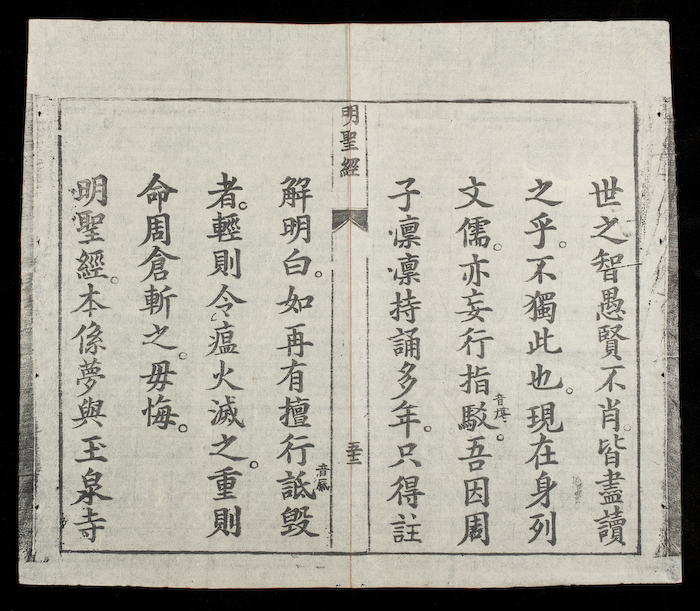 世之智愚賢不肖。皆盡讀
之乎。不獨此也。現在身列
文儒。亦妄行指駁音博。吾因周
子凜凜持誦多年。只得註
明聖經
五十三
解明白。如再有擅行詆音底毀
者。輕則令瘟火滅之。重則
命周倉斬之。毋悔。
明聖經。本係夢與玉泉寺